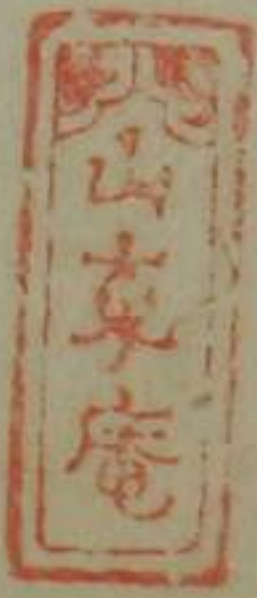 山草庵